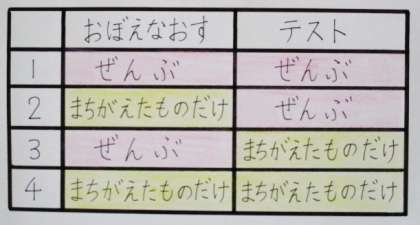 おぼえなおす テスト
1 ぜんぶ ぜんぶ
2 まちがえたものだけ ぜんぶ
3 ぜんぶ まちがえたものだけ
4 まちがえたものだけ まちがえたものだけ